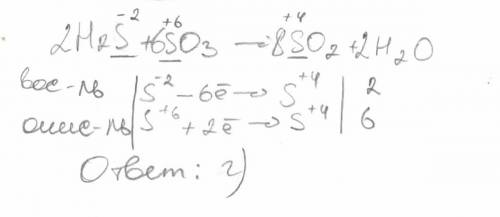 2H₂S⁻² + 6S⁺⁶O₃ → 8S⁺⁴O₂ + 2H₂O
вос-ль | S⁻² - 6ē → S⁺⁴ | 2
окис-ль | S⁺⁶ + 2ē → S⁺⁴ | 6
Ответ: г)